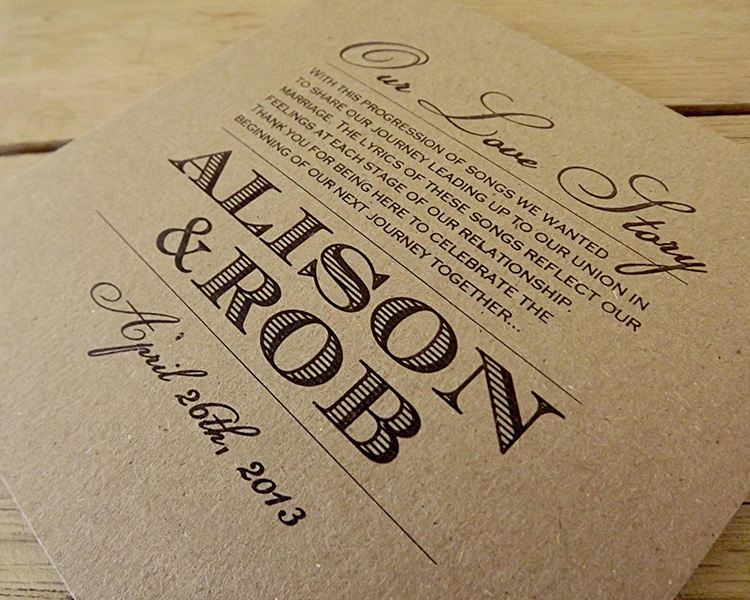 Our Love Story
WITH THIS PROGRESSION OF SONGS WE WANTED
TO SHARE OUR JOURNEY LEADING UP TO OUR UNION IN
MARRIAGE. THE LYRICS OF THESE SONGS REFLECT OUR
FEELINGS AT EACH STAGE OF OUR RELATIONSHIP.
THANK YOU FOR BEING HERE TO CELEBRATE THE
BEGINNING OF OUR NEXT JOURNEY TOGETHER...
ALISON
& ROB
April 26th, 2013